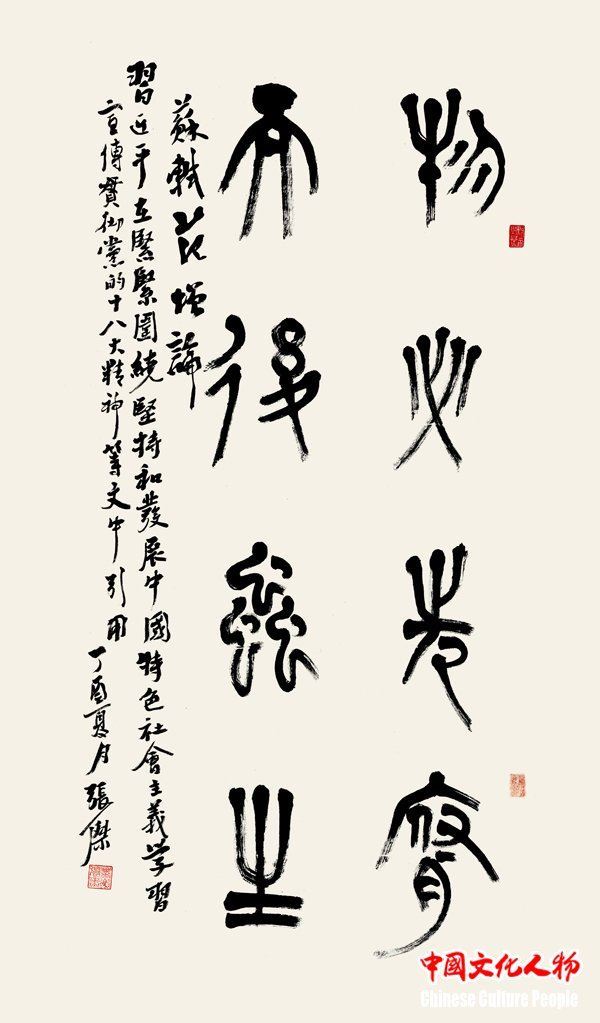 物必先腐
而後蟲生
蘇軾范增論
習近平在緊緊圍繞堅持和發展中國特色社會主義学習
宣傳貫彻黨的十八大精神等文中引用 丁酉夏月張傑
中國文化人物
Chinese Culture People